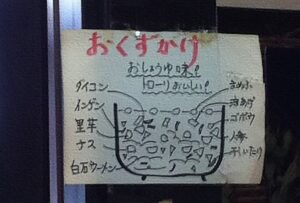 おくずかけ
おしょうゆ味!
トローリおいしい!
ダイコン
インゲン
里芋
ナス
白石ウーメン
まめふ
油あげ
ゴボウ
人参
干ししいたけ